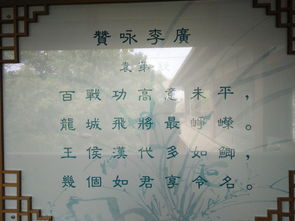 贊咏李廣
袁第
百戰功高意未平，
龍城飛將最崢嶸。
王侯漢代多如鯽，
幾個如君享令名。